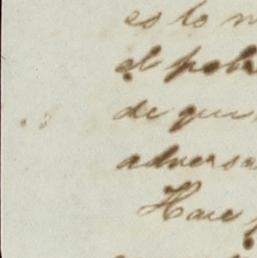 es lo
al pobr
de quie
adversa
Hace